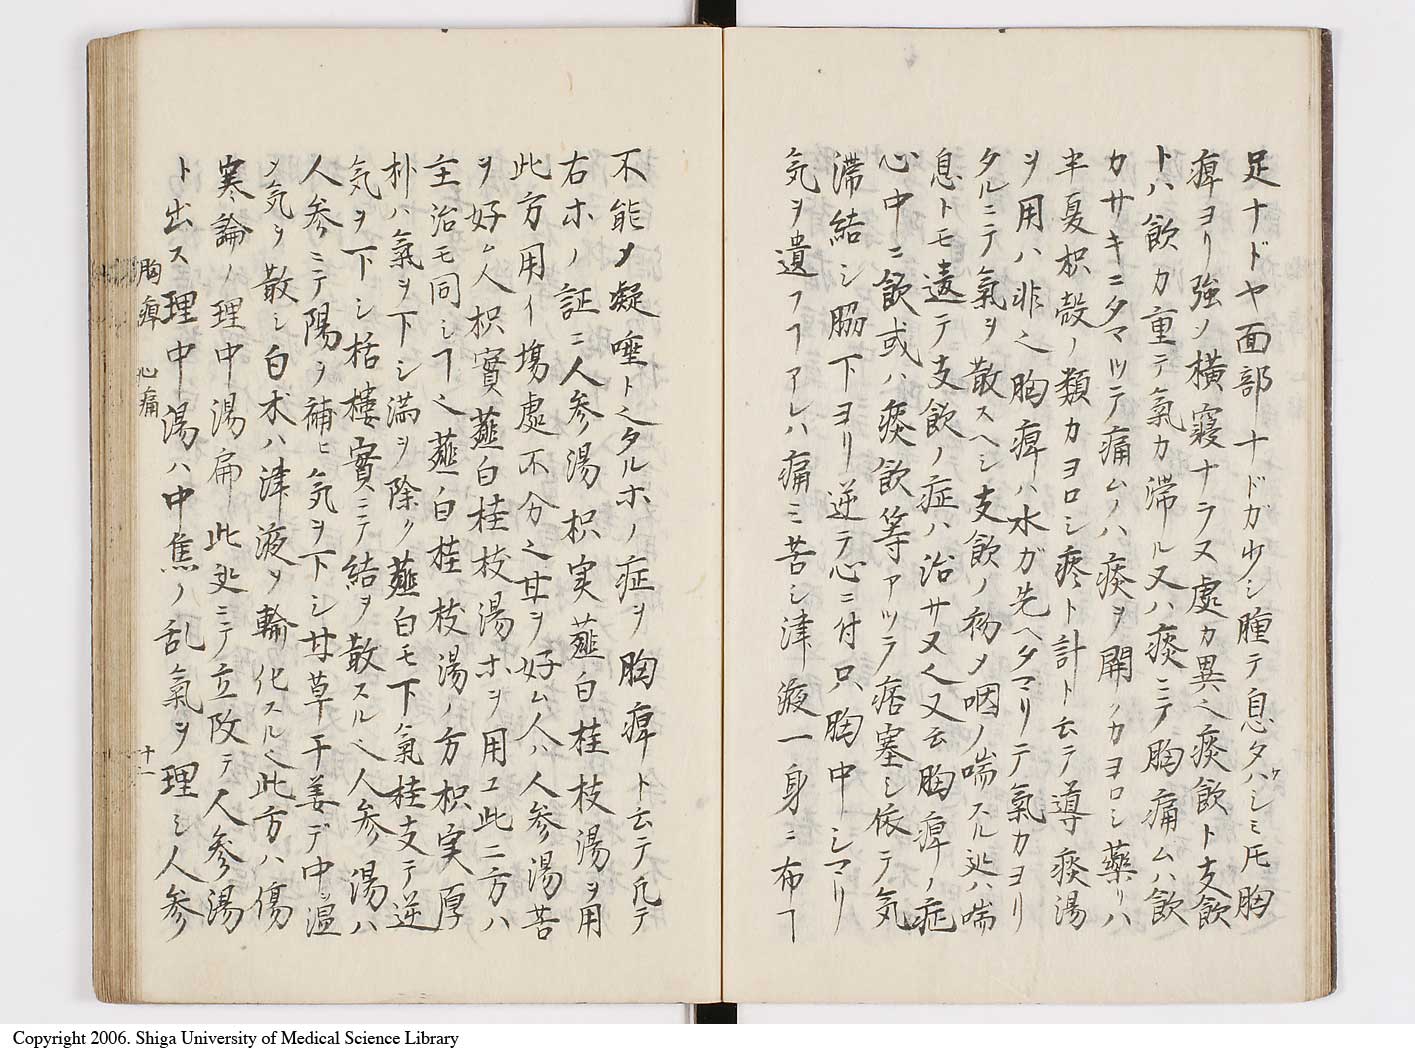 足ナドヤ面部ナドガ少シ腫テ息タハシミ𪜈胸
ケ
痺ヨリ強シ横寝ナラヌ處カ異ヘ痰飲ト支飲
トハ飲カ重テ氣カ滞ル又ハ痰ニテ胸痛ムハ飲
カサキニタマツテ痛ムノハ痰ヲ開クカヨロシ薬リハ
半夏枳殻ノ類カヨロシ痰ト計ト云テ導痰湯
ヲ用ハ非也胸痺ハ水ガ先ヘタマリテ氣カヨリ
タルニテ氣ヲ散スヘシ支飲ノ初メ咽ノ喘スル処ハ喘
息トモ違テ支飲ノ症ハ治サヌ也又云胸痺ノ症
心中ニ飲或ハ痰飲等アツテ痞塞シ依テ気
滞結シ脇下ヨリ逆テ心ニ付只胸中シマリ
気ヲ遺フヿアレハ痛ミ苦シ津液一身ニ布ヿ
不能メ凝唾ト也タルホノ症ヲ胸痺ト云テ凡テ
右ホノ証ニ人参湯枳実薤白桂枝湯ヲ用
此方用イ塲處不分也甘ヲ好ム人ハ人参湯苦
ヲ好ム人枳實薤白桂枝湯ホヲ用ユ此二方ハ
主治モ同シヿ也薤白桂枝湯ノ方枳実厚
朴ハ氣ヲ下シ満ヲ除ク薤白モ下氣桂支テ逆
気ヲ下シ栝樓實ニテ結ヲ散スル也人参湯ハ
人参ニテ陽ヲ補ヒ気ヲ下シ甘草干姜デ中ヲ温
ヲ気ヲ散シ白朮ハ津液ヲ輪化スル也此方ハ傷
寒論ノ理中湯扁此処ニテ立改テ人参湯
ト出ス理中湯ハ中焦ノ乱氣ヲ理シ人参
胸痺 心痛
十一
Copyright 2006. Shiga University of Medical Science Library